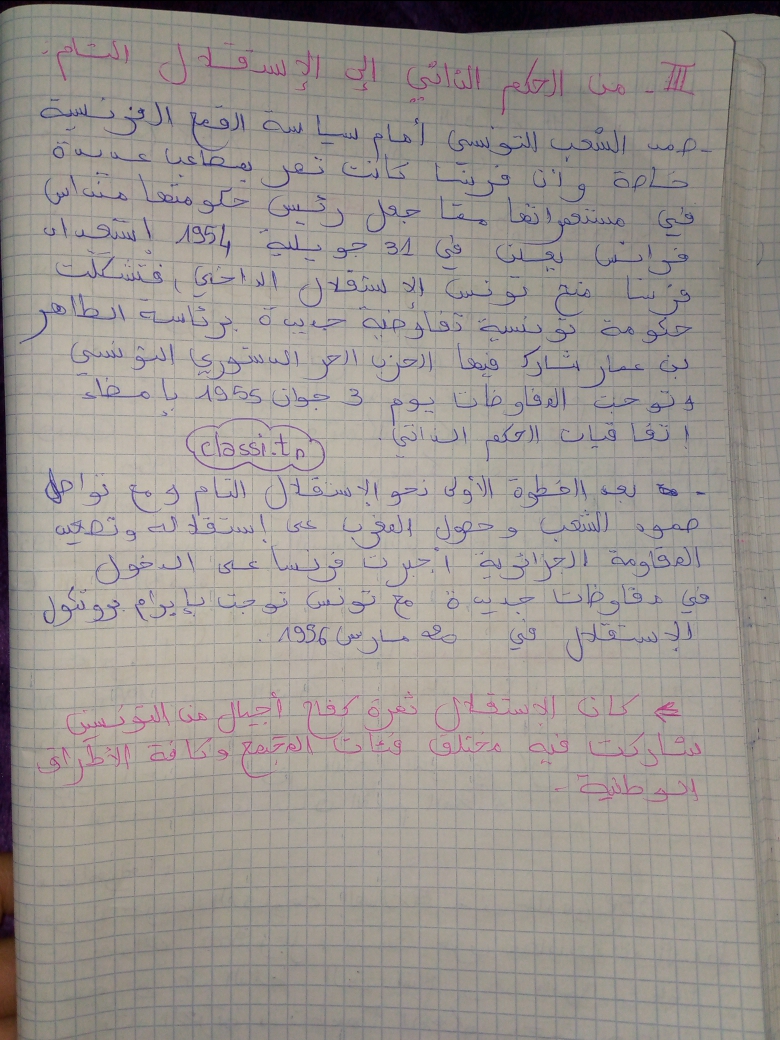 III - من الحكم الذاتي إلى الإستقلال التام:
- صمد الشعب التونسي أمام سياسة القمع الفرنسية
خاصة وأن فرنسا كانت تمر بمصاعب عديدة
في مستعمراتها مما جعل رئيس حكومتها منداس
فرانس يعلن في 31 جويلية 1954 إستعداد
فرنسا منح تونس الإستقلال الداخلي، فتشكلت
حكومة تونسية تفاوضية جديدة برئاسة الطاهر
بن عمار شارك فيها الحزب الحر الدستوري التونسي
وتوجت المفاوضات يوم 3 جوان 1955 بإمضاء
اتفاقيات الحكم الذاتي.
classi.tn
- بعد الخطوة الأولى نحو الإستقلال التام ومع تواصل
صمود الشعب وحصول المغرب على إستقلاله وتصعيد
المقاومة الجزائرية أجبرت فرنسا على الدخول
في مفاوضات جديدة مع تونس توجت بإبرام بروتكول
الإستقلال في 20 مارس 1956.
⇐ كان الإستقلال ثمرة كفاح أجيال من التونسيين
شاركت فيه مختلف فئات المجتمع وكافة الأطراف
الوطنية.